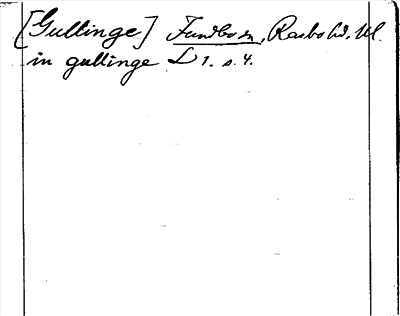 [Gullinge] Funbo sn, Rasbo hd, Upl.
in gullinge L 1. s. 4.